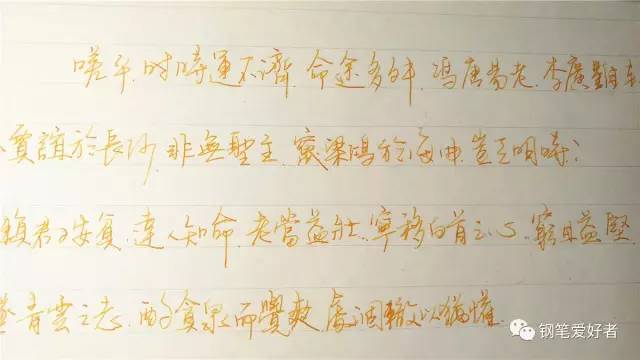 嗟乎.时時運不濟.命途多舛.馮唐易老.李廣難
賈誼於長沙.非無聖主.竄梁鴻於海曲.豈乏明時?
賴君子安貧.達人知命.老當益壯.寧移白首之心.窮且益堅
青雲之志.酌貪泉而覺爽.處涸轍以猶懽.
钢笔爱好者